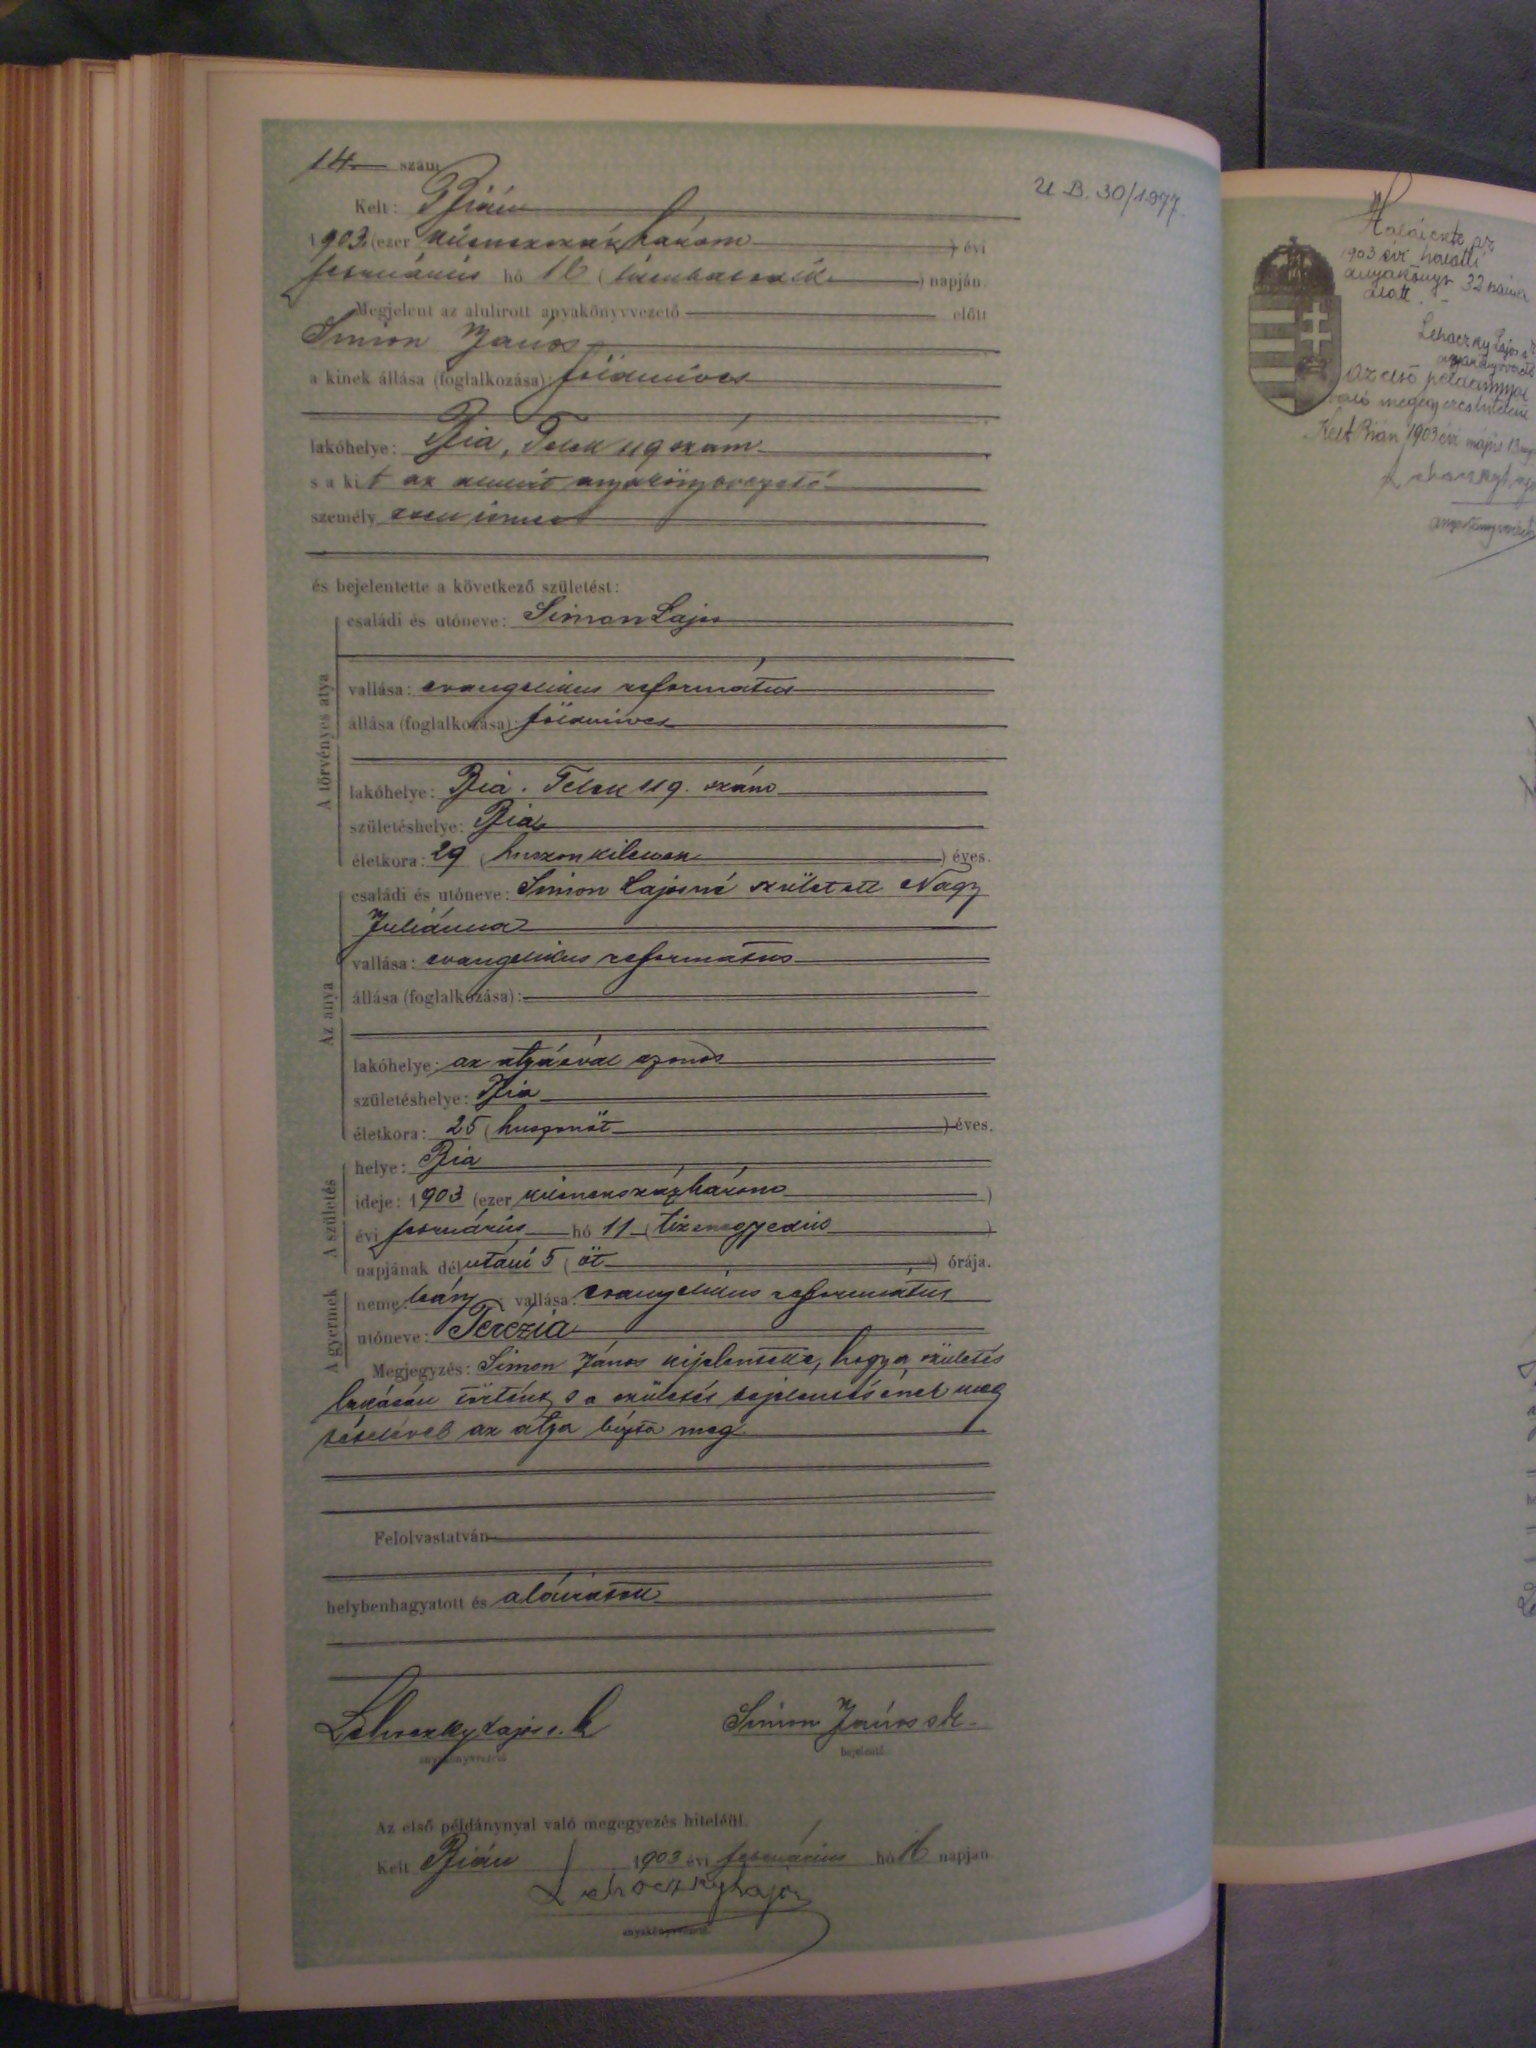 14. szám
U. B. 30/1977.
Kelt: Bián
1903 (ezer kilencszázhárom ) évi
február hó 16 (tizenhatodik ) napján.
Megjelent az alulirott anyakönyvvezető előtt
Simon János
a kinek állása (foglalkozása): földmíves
lakóhelye: Bia, Telek 119 szám
s a kit az alulírt anyakönyvvezető
személyesen ismer
és bejelentette a következő születést:
A törvényes atya
családi és utóneve: Simon Lajos
vallása: evangelikus református
állása (foglalkozása): földmíves
lakóhelye: Bia. Telek 119. szám
születéshelye: Bia
életkora: 29 (huszonkilencz ) éves.
Az anya
családi és utóneve: Simon Lajosné született Nagy
Juliánna
vallása: evangelikus református
állása (foglalkozása):
lakóhelye: az atyáéval azonos
születéshelye: Bia
életkora: 25 (huszonöt ) éves.
A születés
helye: Bia
ideje: 1903 (ezer kilencszázhárom )
évi február hó 11 (tizenegyedik )
napjának délutáni 5 (öt ) órája.
A gyermek
neme: leány vallása: evangelikus református
utóneve: Terézia
Megjegyzés: Simon János kijelentette, hogy a születés
lakásán történt, s a születés bejelentésének meg
tételével az atya bízta meg.
Felolvastatván
helybenhagyatott és aláíratott
Lehoczky Lajos s. k. Simon János sk.
anyakönyvvezető bejelentő
Az első példánynyal való megegyezés hiteléül.
Kelt Bián 1903 évi február hó 16 napján
Lehoczky Lajos
anyakönyvvezető
az
1903 évi halotti
anyakönyv 32 száma
alatt. -
Lehoczky Lajos
anyakönyvvezető
Az első példánynyal
való megegyezés hiteléül
Kelt Bián 1903 évi május 13
anyakönyvvezető